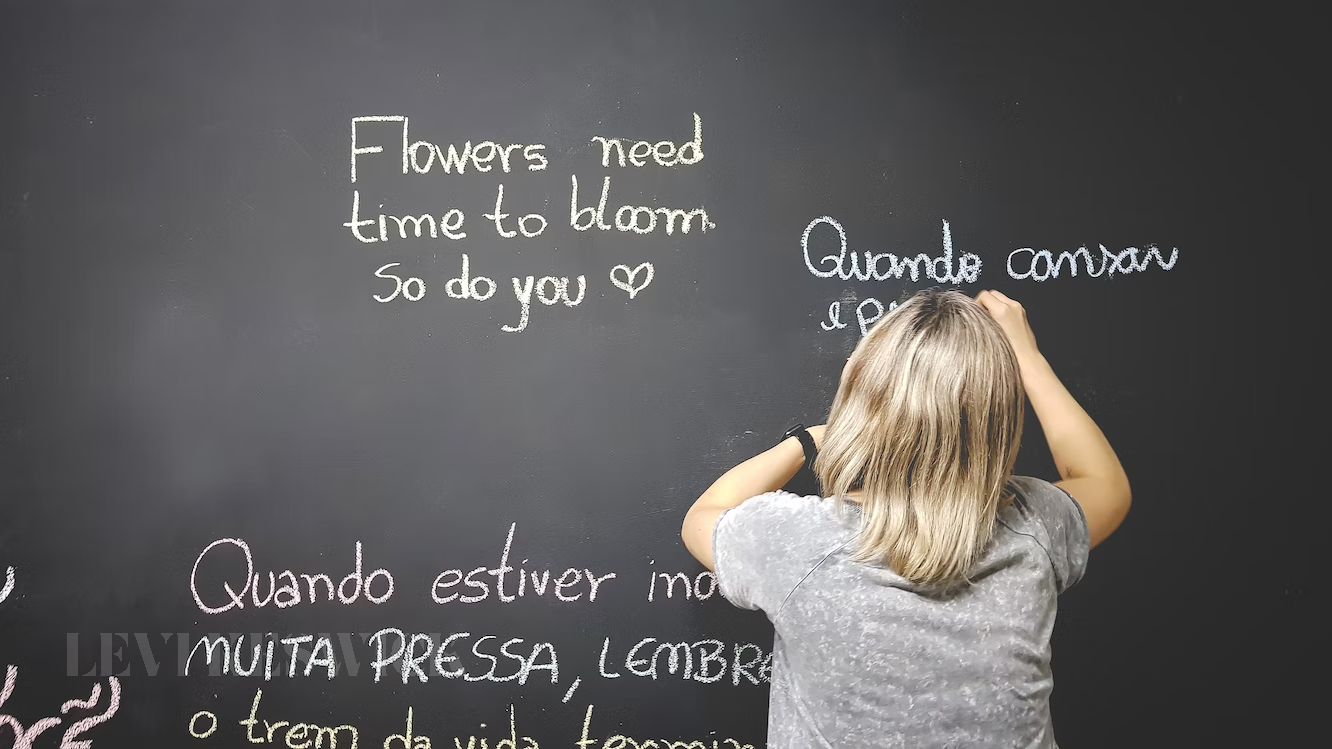 Flowers need
time to bloom.
So do you ♡
Quando cansar
e
Quando estiver indo
MUITA PRESSA, LEMBRE
o trem da vida